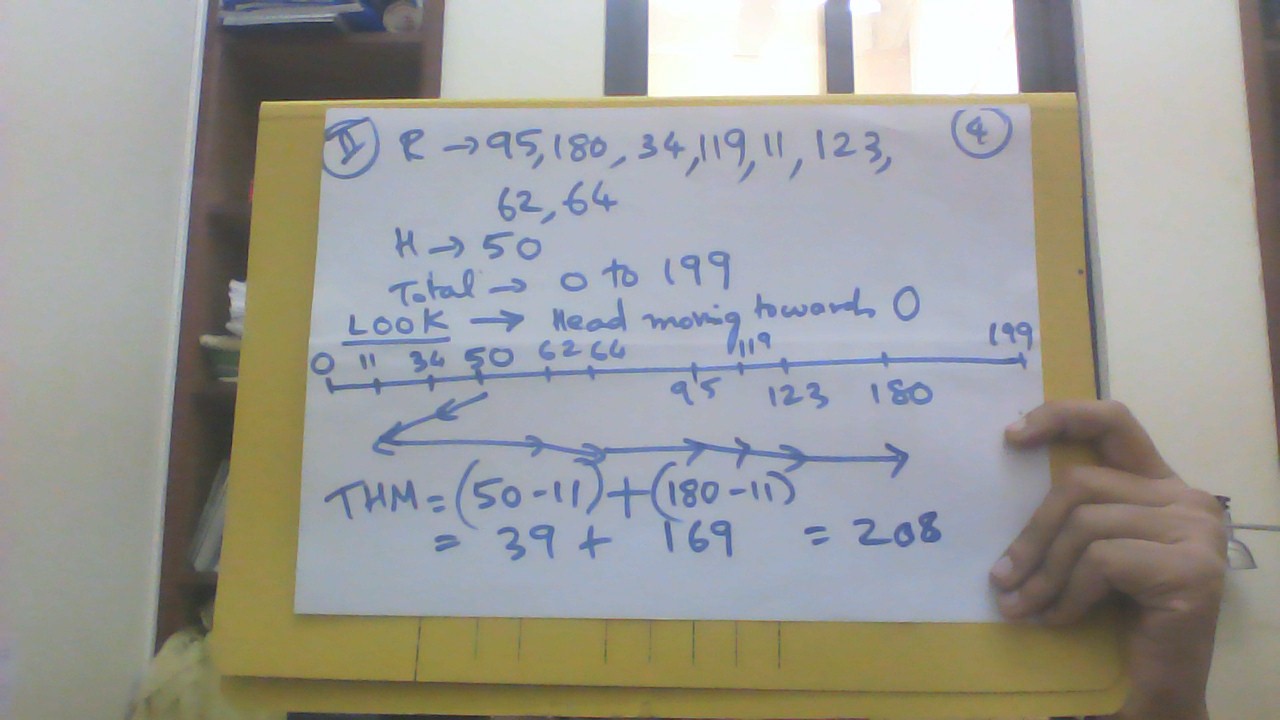 II R → 95, 180, 34, 119, 11, 123, 4
62, 64
H → 50
Total → 0 to 199
LOOK → Head moving towards 0
0 11 34 50 62 64 119 199
95 123 180
THM = (50 - 11) + (180 - 11)
= 39 + 169 = 208